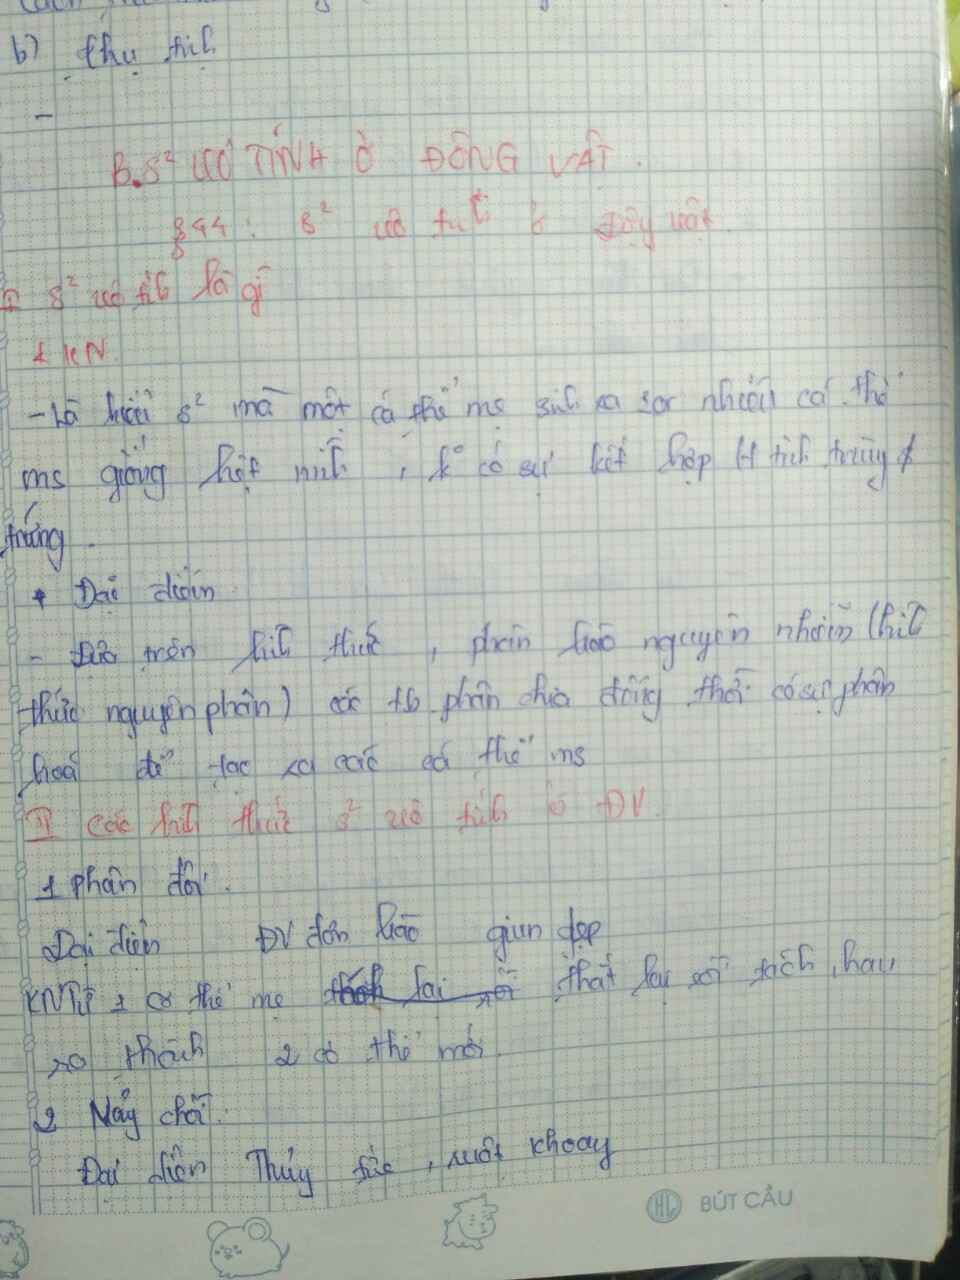 b) thụ tinh
-
B. S² VÔ TÍNH Ở ĐỘNG VẬT.
§44: S² vô tính ở động vật.
I S² vô tính là gì
1 KN.
- Là kiểu s² mà một cá thể ms sinh ra 1 or nhiều cá thể
ms giống hệt mình, k° có sự kết hợp tinh trùng &
trứng.
* Đại diện
- Dựa trên hình thức, phân bào nguyên nhiễm (hình
thức nguyên phân) các tb phân chia đồng thời có sự phân
hoá để tạo ra các cá thể ms
II Các hình thức s² vô tính ở ĐV.
1 phân đôi.
Đại diện ĐV đơn bào giun dẹp
1 cơ thể mẹ lại thắt lại rồi tách
ra thành 2 cơ thể mới
2 Nảy chồi.
Đại diện Thủy tức, ruột khoay
HL BÚT CẢU